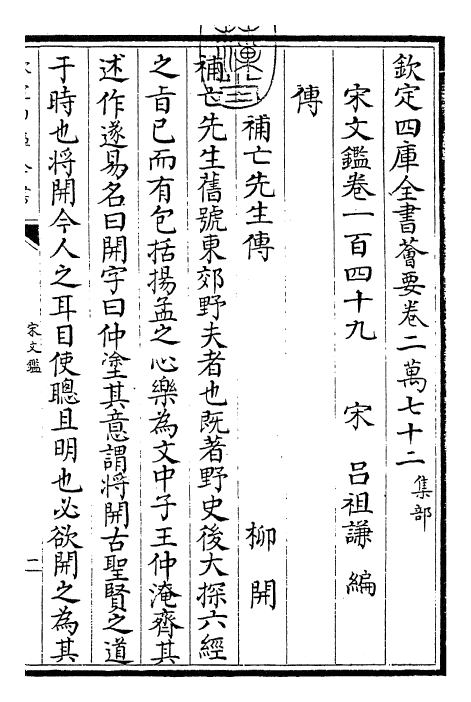 欽定四庫全書薈要卷二萬七十二 集部
宋文鑑卷一百四十九 宋 吕祖謙 編
傳
補亡先生傳 柳開
補亡先生舊號東郊野夫者也既著野史後大探六經
之㫖已而有包括揚孟之心樂為文中子王仲淹齊其
述作遂易名曰開字曰仲塗其意謂將開古聖賢之道
于時也將開今人之耳目使聰且明也必欲開之為其
宋文鑑